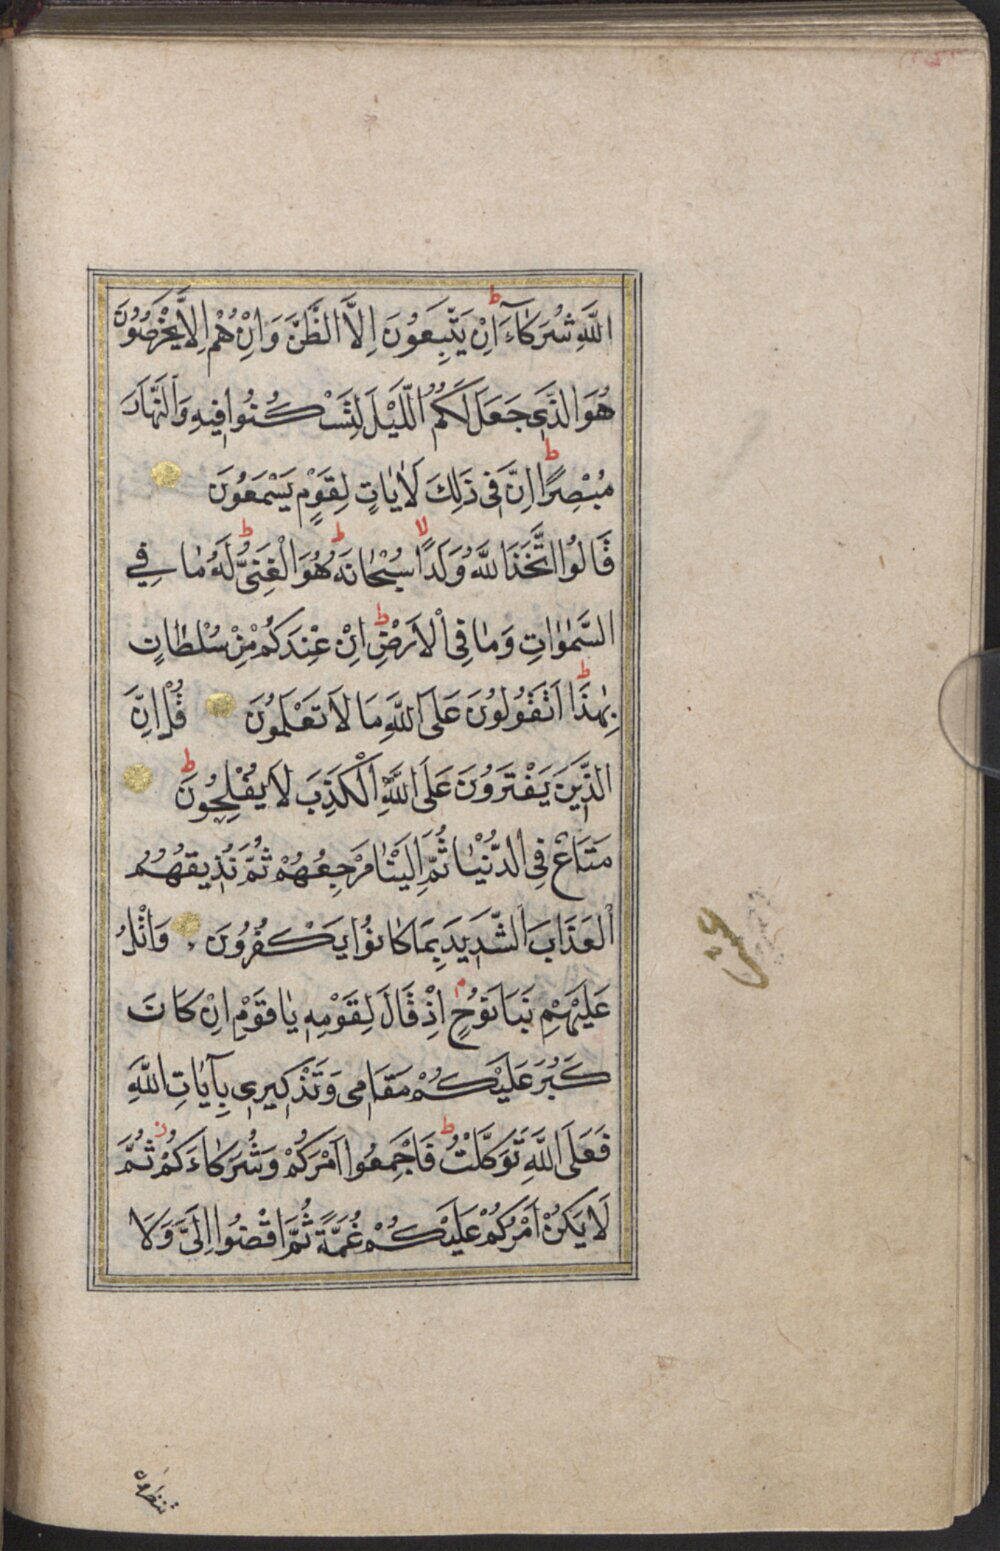 اللّٰهِ شُرَكَاۤءَ ط اِنْ يَتَّبِعُونَ اِلَّا الظَّنَّ وَاِنْ هُمْ اِلَّا يَخْرُصُونَ
هُوَ الَّذِي جَعَلَ لَكُمُ الَّيْلَ لِتَسْكُنُوا فِيهِ وَالنَّهَارَ
مُبْصِرًا ط اِنَّ فِي ذٰلِكَ لَاٰيَاتٍ لِقَوْمٍ يَسْمَعُونَ
قَالُوا اتَّخَذَ اللّٰهُ وَلَدًا لا سُبْحَانَهُ ط هُوَ الْغَنِيُّ ط لَهُ مَا فِي
السَّمٰوَاتِ وَمَا فِي الْاَرْضِ ط اِنْ عِنْدَكُمْ مِنْ سُلْطَانٍ
بِهٰذَا ط اَتَقُولُونَ عَلَى اللّٰهِ مَا لَا تَعْلَمُونَ قُلْ اِنَّ
الَّذِينَ يَفْتَرُونَ عَلَى اللّٰهِ الْكَذِبَ لَا يُفْلِحُونَ ط
مَتَاعٌ فِي الدُّنْيَا ثُمَّ اِلَيْنَا مَرْجِعُهُمْ ثُمَّ نُذِيقُهُمُ
الْعَذَابَ الشَّدِيدَ بِمَا كَانُوا يَكْفُرُونَ وَاتْلُ
عَلَيْهِمْ نَبَاَ نُوحٍ م اِذْ قَالَ لِقَوْمِهِ يَا قَوْمِ اِنْ كَانَ
كَبُرَ عَلَيْكُمْ مَقَامِي وَتَذْكِيرِي بِآيَاتِ اللّٰهِ
فَعَلَى اللّٰهِ تَوَكَّلْتُ ط فَاَجْمِعُوا اَمْرَكُمْ وَشُرَكَاءَكُمْ ثُمَّ
لَا يَكُنْ اَمْرُكُمْ عَلَيْكُمْ غُمَّةً ثُمَّ اقْضُوا اِلَيَّ وَلَا
تنظرون